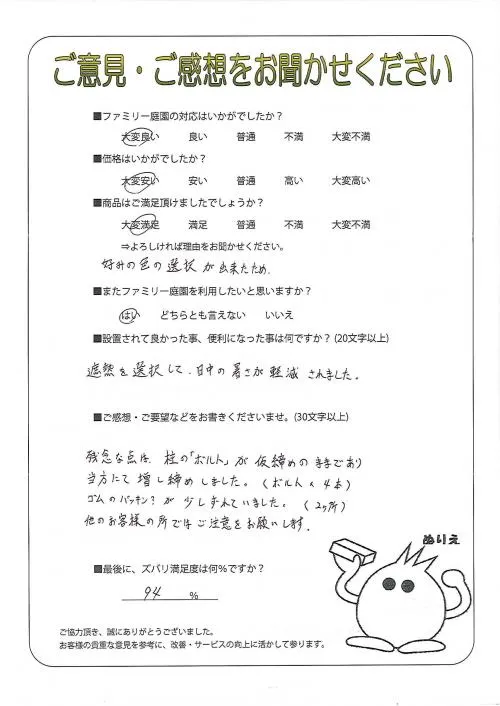 ご意見・ご感想をお聞かせください
■ファミリー庭園の対応はいかがでしたか？
大変良い 良い 普通 不満 大変不満
■価格はいかがでしたか？
大変安い 安い 普通 高い 大変高い
■商品はご満足頂けましたでしょうか？
大変満足 満足 普通 不満 大変不満
⇒よろしければ理由をお聞かせください。
好みの色の選択が出来たため.
■またファミリー庭園を利用したいと思いますか？
はい どちらとも言えない いいえ
■設置されて良かった事、便利になった事は何ですか？(20文字以上)
遮熱を選択して、日中の暑さが軽減されました。
■ご感想・ご要望などをお書きくださいませ。(30文字以上)
残念な点は、柱の「ボルト」が仮締めのままであり
当方にて増し締めしました。(ボルト×4本)
ゴムのパッキン？が少しずれていました。(2ヶ所)
他のお客様の所ではご注意をお願いします.
ぬりえ
■最後に、ズバリ満足度は何%ですか？
94 %
ご協力頂き、誠にありがとうございました。
お客様の貴重な意見を参考に、改善・サービスの向上に活かして参ります。